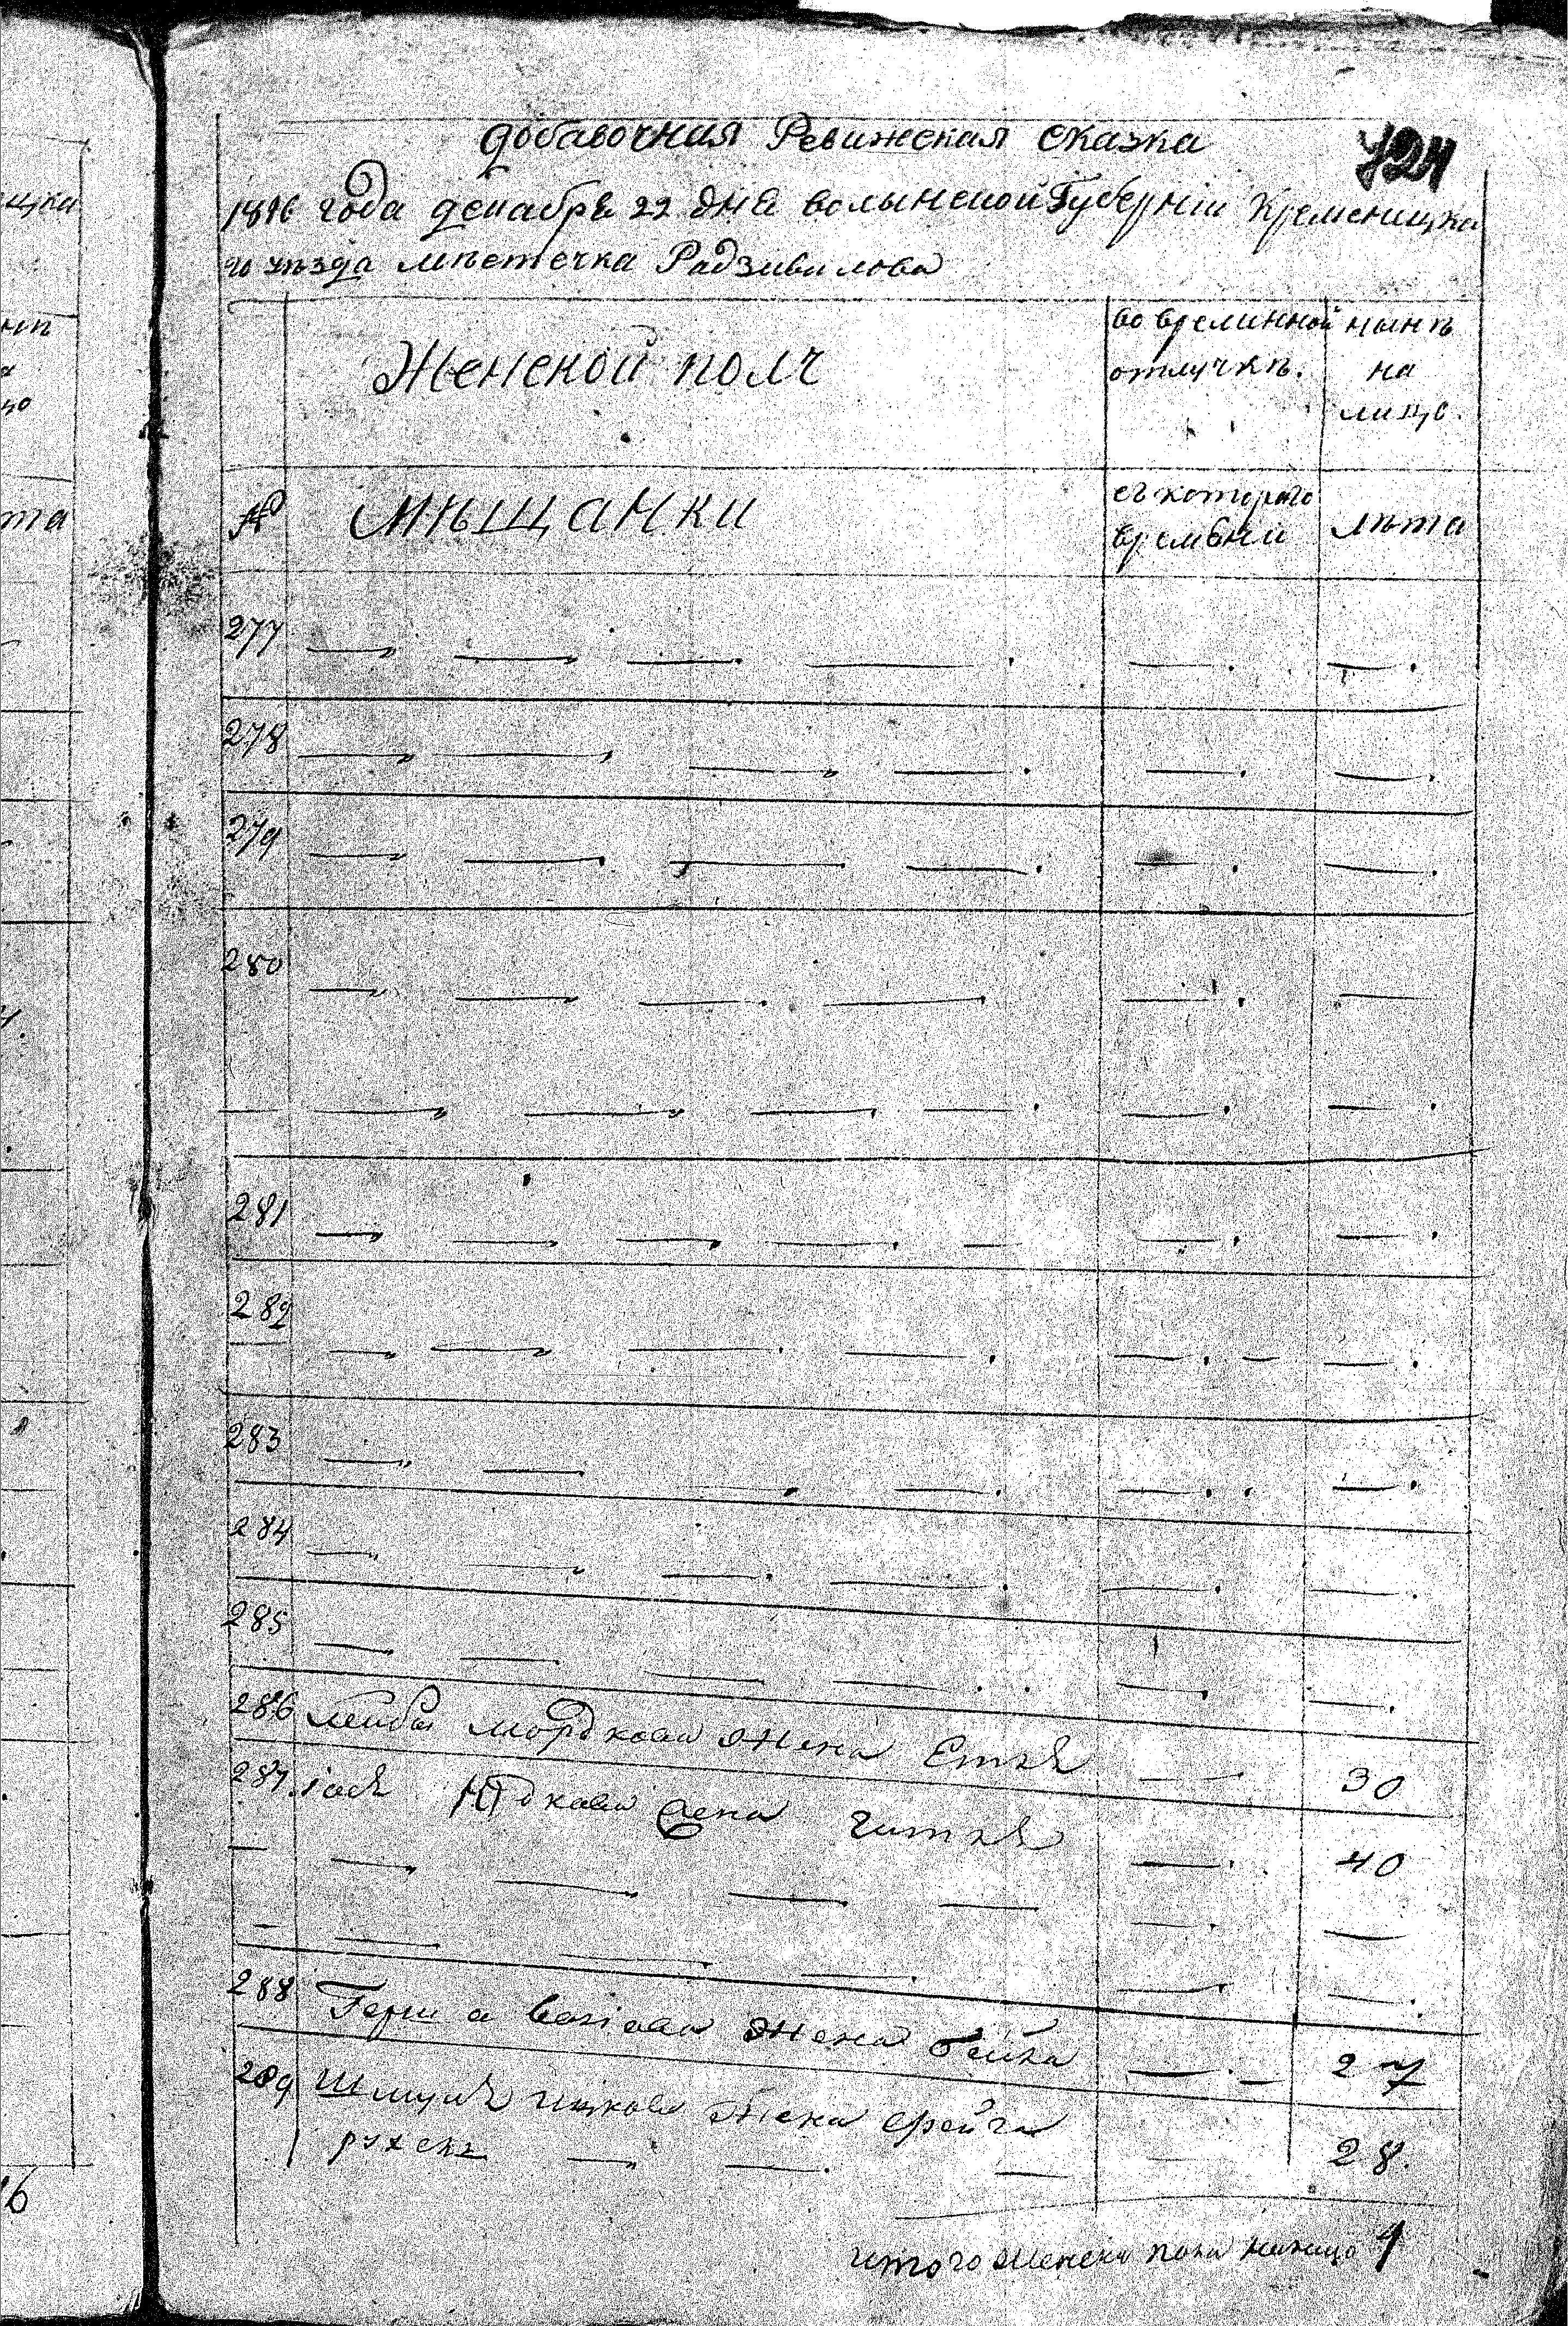 щка
та
16
добавочная Ревижская сказка
724
1816 года декабря 22 дня волынской Губернiи Кременицка
го уѣзда мѣстечка Радзивилова
Женской полъ
во временной отлучкѣ.
нынѣ на лицо.
№ мѣщанки
съ которого времѣни
лѣта
277
278
279
280
281
282
283
284
285
286 лейбы мордкова жена Етля 30
287 iося Юдкова жена гитля 40
288 Герш а жена бейла 27
289 Шмуля ицкова жена фрейга 28.
итого женска пола налицо 4